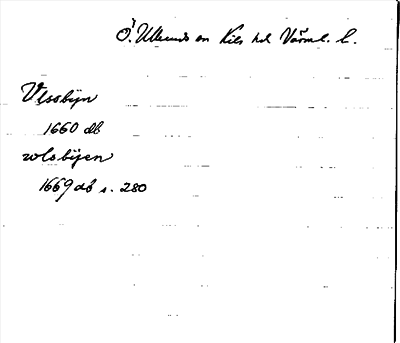 Ö. Ullerud sn Kils hd Värml. l.
Vlssbyn
1660 db
wlsbijen
1669 db s. 280